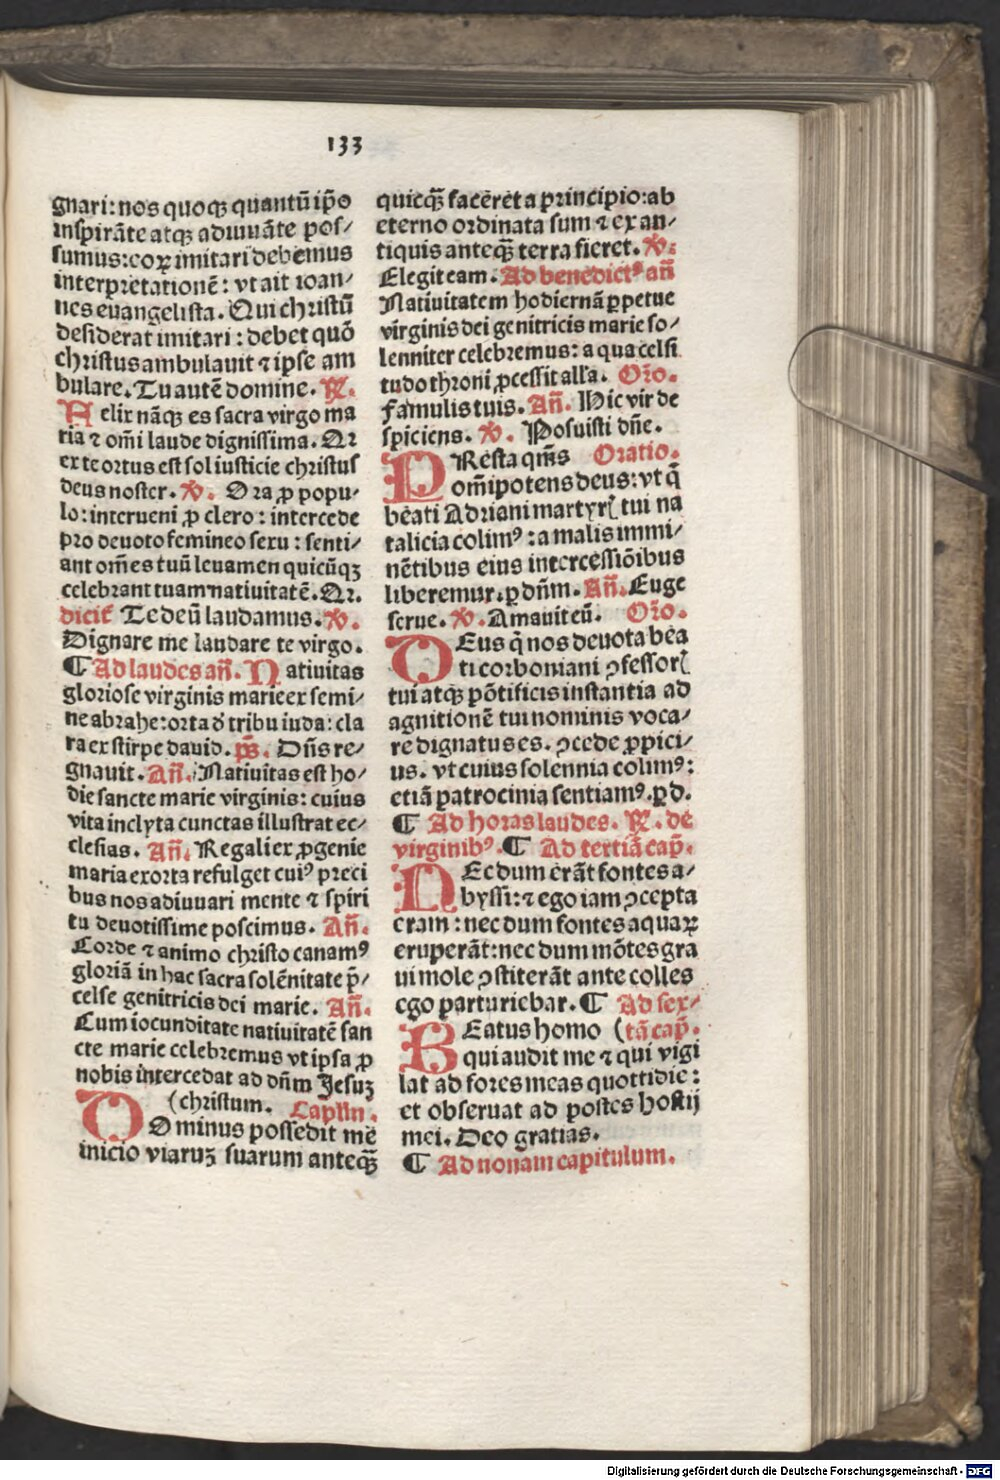 133
gnari: nos quoqꝫ quantũ ip̃o
inspirãte atqꝫ adiuuãte pos/
sumus: eoꝝ imitari debemus
interpretationẽ: vt ait ioan/
nes euangelista. Qui christũ
desiderat imitari: debet quõ
christus ambulauit ⁊ ipse am
bulare. Tu autẽ domine. ℟.
Felix nãqꝫ es sacra virgo ma
ria ⁊ om̃i laude dignissima. Qr
ex te ortus est sol iusticie christus
deus noster. ℣. Ora ꝓ popu/
lo: interueni ꝓ clero: intercede
pro deuoto femineo sexu: senti/
ant om̃es tuũ leuamen quicũqꝫ
celebrant tuam natiuitatẽ. Qr.
dicit̃ Te deũ laudamus. ℣.
Dignare me laudare te virgo.
¶ Ad laudes añ. Natiuitas
gloriose virginis marie ex semi/
ne abrahe: orta ð tribu iuda: cla
ra ex stirpe dauid. ps̃. Dñs re/
gnauit. Añ. Natiuitas est ho/
die sancte marie virginis: cuius
vita inclyta cunctas illustrat ec/
clesias. Añ. Regali ex ꝓgenie
maria exorta refulget cuiꝰ preci
bus nos adiuuari mente ⁊ spiri
tu deuotissime poscimus. Añ.
Corde ⁊ animo christo canamꝰ
gloriã in hac sacra solẽnitate p̃/
celse genitricis dei marie. Añ.
Cum iocunditate natiuitatẽ san
cte marie celebremus vt ipsa ꝓ
nobis intercedat ad dñm Jesuꝫ
(christum. Caplm.
DOminus possedit me
inicio viaruꝫ suarum anteqꝫ̃
quicqꝫ̃ faceret a principio: ab
eterno ordinata sum ⁊ ex an/
tiquis anteqꝫ̃ terra fieret. ℣.
Elegit eam. Ad benedictꝰ añ
Natiuitatem hodiernã ꝑpetue
virginis dei genitricis marie so/
lenniter celebremus: a qua celsi
tudo throni ꝓcessit alla. Orõ.
Famulis tuis. Añ. Hic vir de
spiciens. ℣. Posuisti dñe.
PResta qm̃s Oratio.
om̃ipotens deus: vt q̃
beati Adriani martyrꝭ tui na
talicia colimꝰ: a malis immi/
nẽtibus eius intercessiõibus
liberemur. ꝑ dñm. Añ. Euge
serue. ℣. Amauit eũ. Orõ.
DEus q̃ nos deuota bea
ti corboniani ꝯfessorꝭ
tui atqꝫ põtificis instantia ad
agnitionẽ tui nominis voca/
re dignatus es. ꝯcede ꝓpici/
us. vt cuius solennia colimꝰ:
etiã patrocinia sentiamꝰ. ꝑ d.
¶ Ad horas laudes. ℟. de
virginibꝰ. ¶ Ad tertiã cap̃.
NEcdum erãt fontes a/
byssi: ⁊ ego iam ꝯcepta
eram: necdum fontes aquaꝝ
eruperãt: necdum mõtes gra
ui mole ꝯstiterãt ante colles
ego parturiebar. ¶ Ad sex/
BEatus homo (tã cap̃.
qui audit me ⁊ qui vigi
lat ad fores meas quottidie:
et obseruat ad postes hostij
mei. Deo gratias.
¶ Ad nonam capitulum.
Digitalisierung gefördert durch die Deutsche Forschungsgemeinschaft - DFG